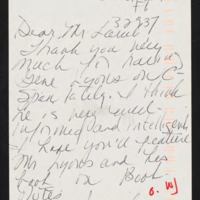 32937
Dear Mr Lamb
Thank you very
much for having
Gene Lyons on C-
Span lately. I think
he is very well-
informed and intelligent
I hope you'd feature
Mr Lyons and his
book on Book
Notes